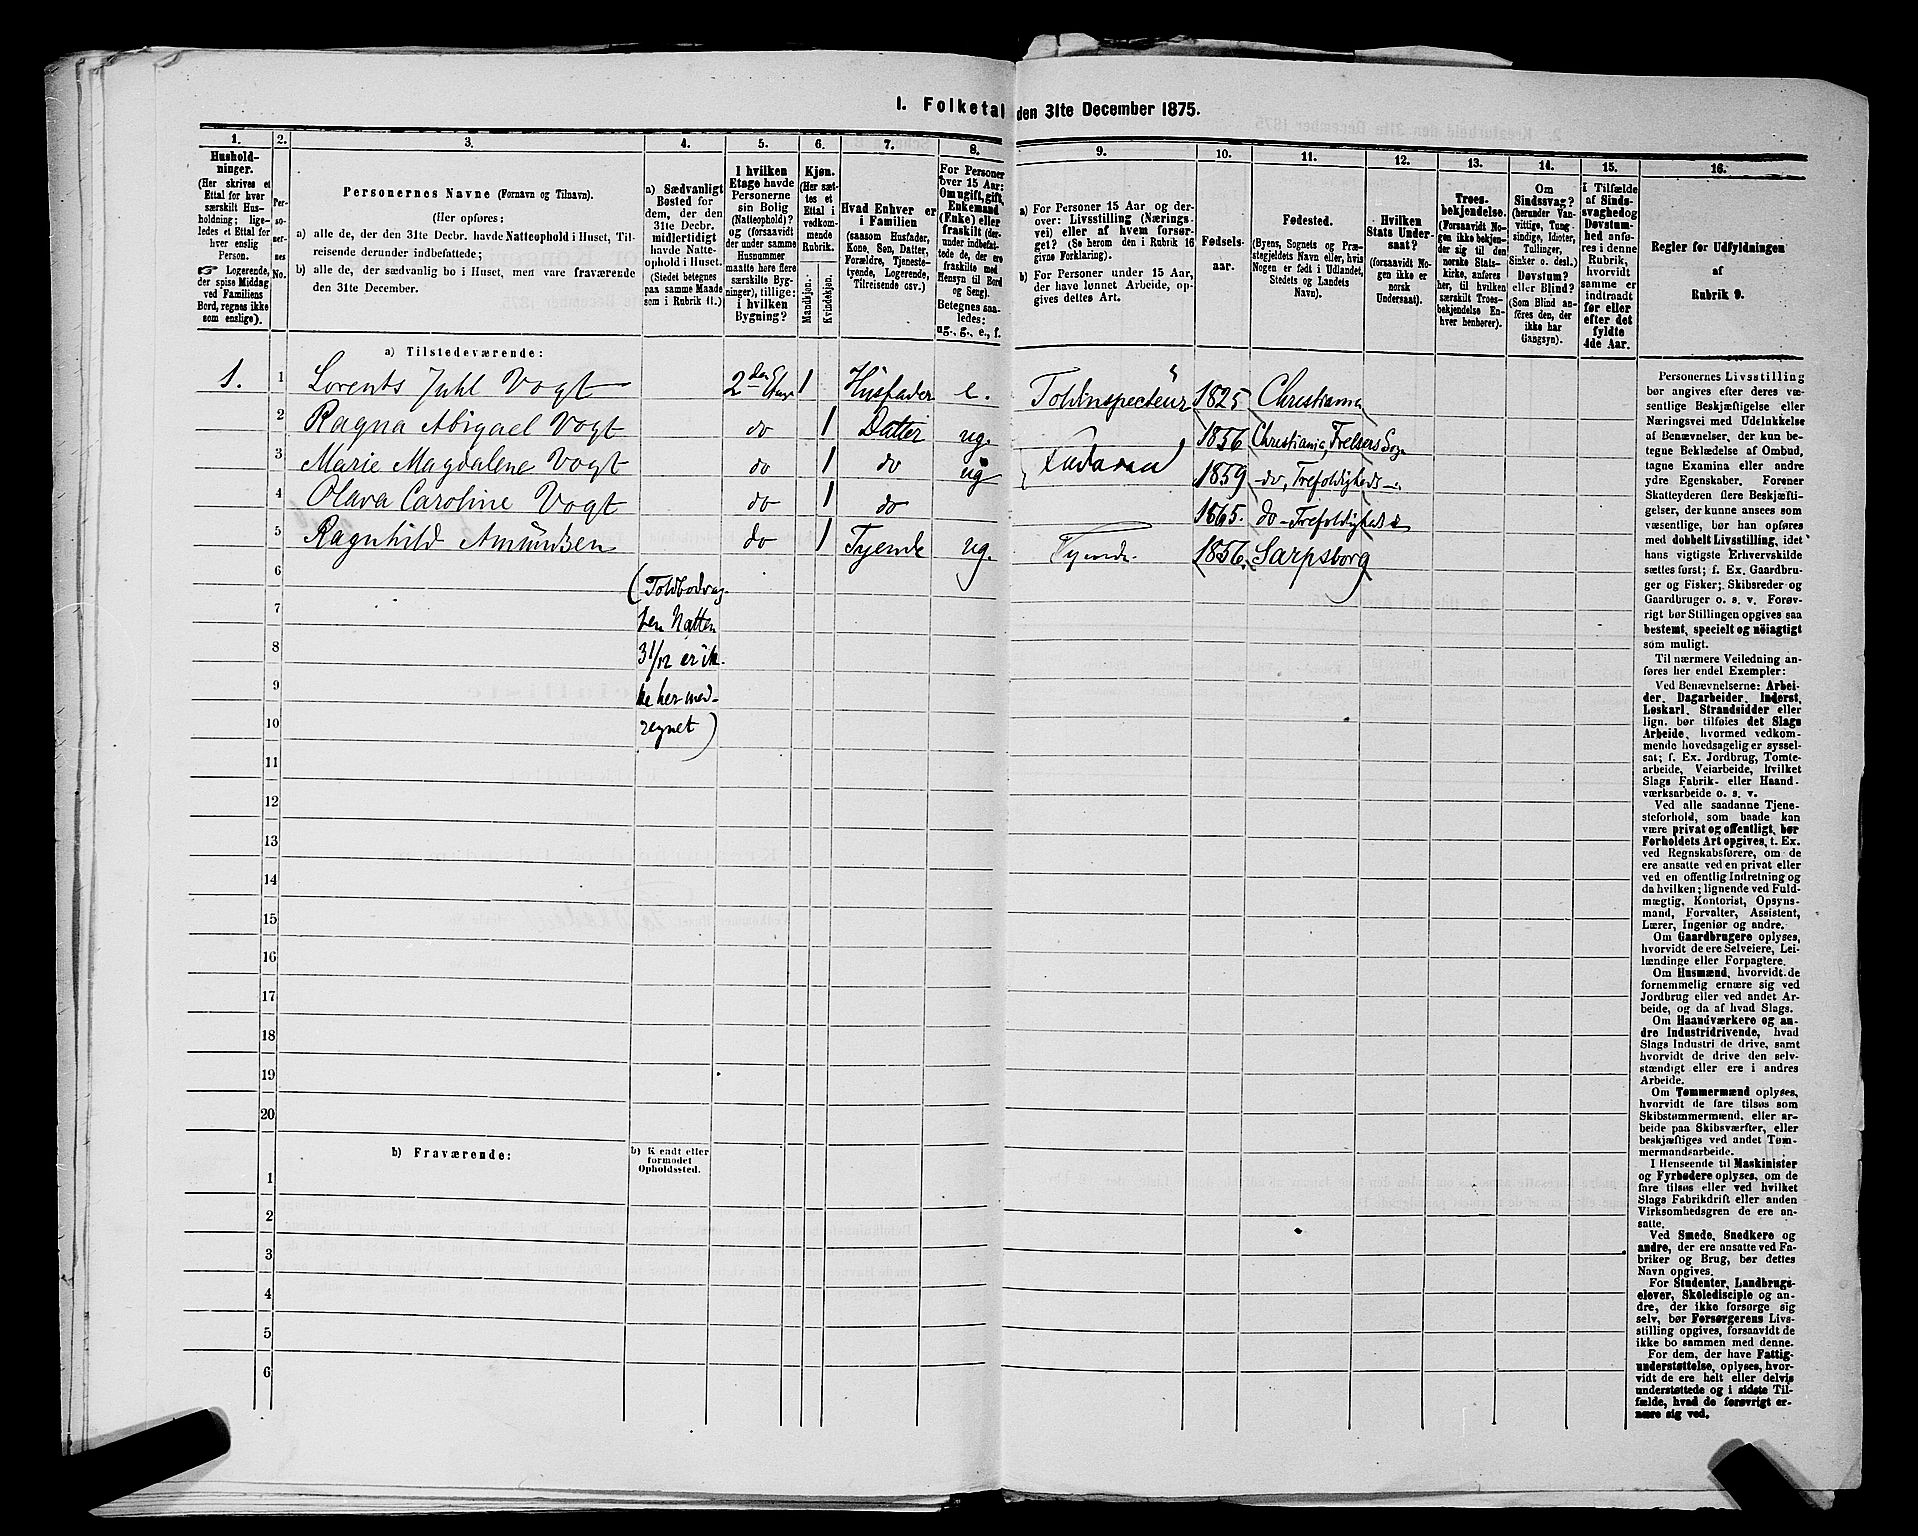 I. Folketal den 31te December 1875.
1.
Hushold-
ninger.
(Her skrives et
Ettal for hver
særskilt Hus-
holdning; lige-
ledes et Ettal for
hver enslig
Person.
☞ Logerende,
der spise Middag
ved Familiens
Bord, regnes ikke
som enslige).
2.
Per-
so-
ner-
nes
No.
3.
Personernes Navne (Fornavn og Tilnavn).
(Her opføres:
a) alle de, der den 31te Decbr. havde Natteophold i Huset, Til-
reisende derunder indbefattede;
b) alle de, der sædvanlig bo i Huset, men vare fraværende
den 31te December.
4.
a) Sædvanligt
Bosted for
dem, der den
31te Decbr.
midlertidigt
havde Natte-
ophold i Huset.
(Stedet betegnes
paa samme Maade
som i Rubrik 11.)
5.
I hvilken
Etage havde
Personerne
sin Bolig
(Natteophold)?
og (forsaavidt
der under samme
Husnummer
maatte høre flere
særskilte Byg-
ninger), tillige:
i hvilken
Bygning?
6.
Kjøn.
(Her sæt-
tes et
Ettal i
vedkom-
mende
Rubrik.
Mandkjøn.
Kvindekjøn.
7.
Hvad Enhver er
i Familien
(saasom Husfader,
Kone, Søn, Datter,
Forældre, Tjeneste-
tyende, Logerende,
Tilreisende osv.).
8.
For Personer
over 15 Aar:
Om ugift, gift,
Enkemand
(Enke) eller
fraskilt (der-
under indbefat-
tede de, der ere
fraskilte med
Hensyn til Bord
og Seng).
Betegnes saa-
ledes:
ug., g., e., f.
9.
a) For Personer 15 Aar og der-
over: Livsstilling (Nærings-
vei) eller af hvem forsør-
get? (Se herom den i Rubrik 16
givne Forklaring).
b) For Personer under 15 Aar,
der have lønnet Arbeide, op-
gives dettes Art.
10.
Fødsels-
aar.
11.
Fødested.
(Byens, Sognets og Præ-
stegjeldets Navn eller, hvis
Nogen er født i Udlandet,
Stedets og Landets
Navn).
12.
Hvilken
Stats Under-
saat?
(forsaavidt No-
gen ikke er
norsk
Undersaat).
13.
Troes-
bekjendelse.
(Forsaavidt No-
gen ikke bekjen-
der sig til den
norske Stats-
kirke, anføres
her, til hvilken
særskilt Troes-
bekjendelse En-
hver henhører).
14.
Om
Sindssvag?
(herunder Van-
vittige, Tung-
sindige, Idioter,
Tullinger,
Sinker o. desl.)
Døvstum?
eller Blind?
(Som Blind an-
føres den, der
ikke har
Gangsyn).
15.
I Tilfælde
af Sinds-
svaghed og
Døvstum-
hed anfø-
res i denne
Rubrik,
hvorvidt
samme er
indtraadt
før eller
efter det
fyldte
4de Aar.
16.
Regler for Udfyldningen
af
Rubrik 9.
a) Tilstedeværende:
1. 1 Lorents Juhl Vogt 2den Etage 1 Husfader e. Toldinspecteur 1825 Christiania
2 Ragna Abigael Vogt do 1 Datter ug. 1856 Christiania, Frelsers Sogn
3 Marie Magdalene Vogt do 1 do ug 1859 do, Trefoldigheds
4 Olava Caroline Vogt do 1 do 1865. do Trefoldigheds
5 Ragnhild Amundsen do 1 Tyende ug. Tyende 1856. Sarpsborg
6
(Toldbodvag-
7
ten Natten
8
31/12 er ik-
9
ke her med-
10
regnet)
11
12
13
14
15
16
17
18
19
20
b) Fraværende:
b) Kjendt eller
formodet
Opholdssted.
1
2
3
4
5
6
Personernes Livsstilling
bør angives efter deres væ-
sentlige Beskjæftigelse eller
Næringsvei med Udelukkelse
af Benævnelser, der kun be-
tegne Beklædelse af Ombud,
tagne Examina eller andre
ydre Egenskaber. Forener
Skatteyderen flere Beskjæfti-
gelser, der kunne ansees som
væsentlige, bør han opføres
med dobbelt Livsstilling, idet
hans vigtigste Erhvervskilde
sættes først; f. Ex. Gaardbru-
ger og Fisker; Skibsreder og
Gaardbruger o. s. v. Forøv-
rigt bør Stillingen opgives saa
bestemt, specielt og nøiagtigt
som muligt.
Til nærmere Veiledning an-
føres her endel Exempler:
Ved Benævnelserne: Arbei-
der, Dagarbeider, Inderst,
Løskarl, Strandsidder eller
lign. bør tilføies det Slags
Arbeide, hvormed vedkom-
mende hovedsagelig er syssel-
sat; f. Ex. Jordbrug, Tomte-
arbeide, Veiarbeide, hvilket
Slags Fabrik- eller Haand-
værksarbeide o. s. v.
Ved alle saadanne Tjene-
steforhold, som baade kan
være privat og offentligt, bør
Forholdets Art opgives, t. Ex.
ved Regnskabsførere, om de
ere ansatte ved en privat eller
ved en offentlig Indretning og
da hvilken; lignende ved Fuld-
mægtig, Kontorist, Opsyns-
mand, Forvalter, Assistent,
Lærer, Ingeniør og andre.
Om Gaardbrugere oplyses,
hvorvidt de ere Selveiere, Lei-
lændinge eller Forpagtere.
Om Husmænd, hvorvidt de
fornemmelig ernære sig ved
Jordbrug eller ved andet Ar-
beide, og da af hvad Slags.
Om Haandværkere og an-
dre Industridrivende, hvad
Slags Industri de drive, samt
hvorvidt de drive den selv-
stændigt eller ere i andres
Arbeide.
Om Tømmermænd oplyses,
hvorvidt de fare tilsøs som
Skibstømmermænd, eller ar-
beide paa Skibsværfter, eller
beskjæftiges ved andet Tøm-
mermandsarbeide.
I Henseende til Maskinister
og Fyrbødere oplyses, om de
fare tilsøs eller ved hvilket
Slags Fabrikdrift eller anden
Virksomhedsgren de ere an-
satte.
Ved Smede, Snedkere og
andre, der ere ansatte ved Fa-
briker og Brug, bør dettes
Navn opgives.
For Studenter, Landbrugs-
elever, Skoledisciple og an-
dre, der ikke forsørge sig
selv, bør Forsørgerens Livs-
stilling opgives, forsaavidt de
ikke bo sammen med denne.
For dem, der have Fattig-
understøttelse, oplyses, hvor-
vidt de ere helt eller delvis
understøttede og i sidste Til-
fælde, hvad de forøvrigt er-
nære sig ved.